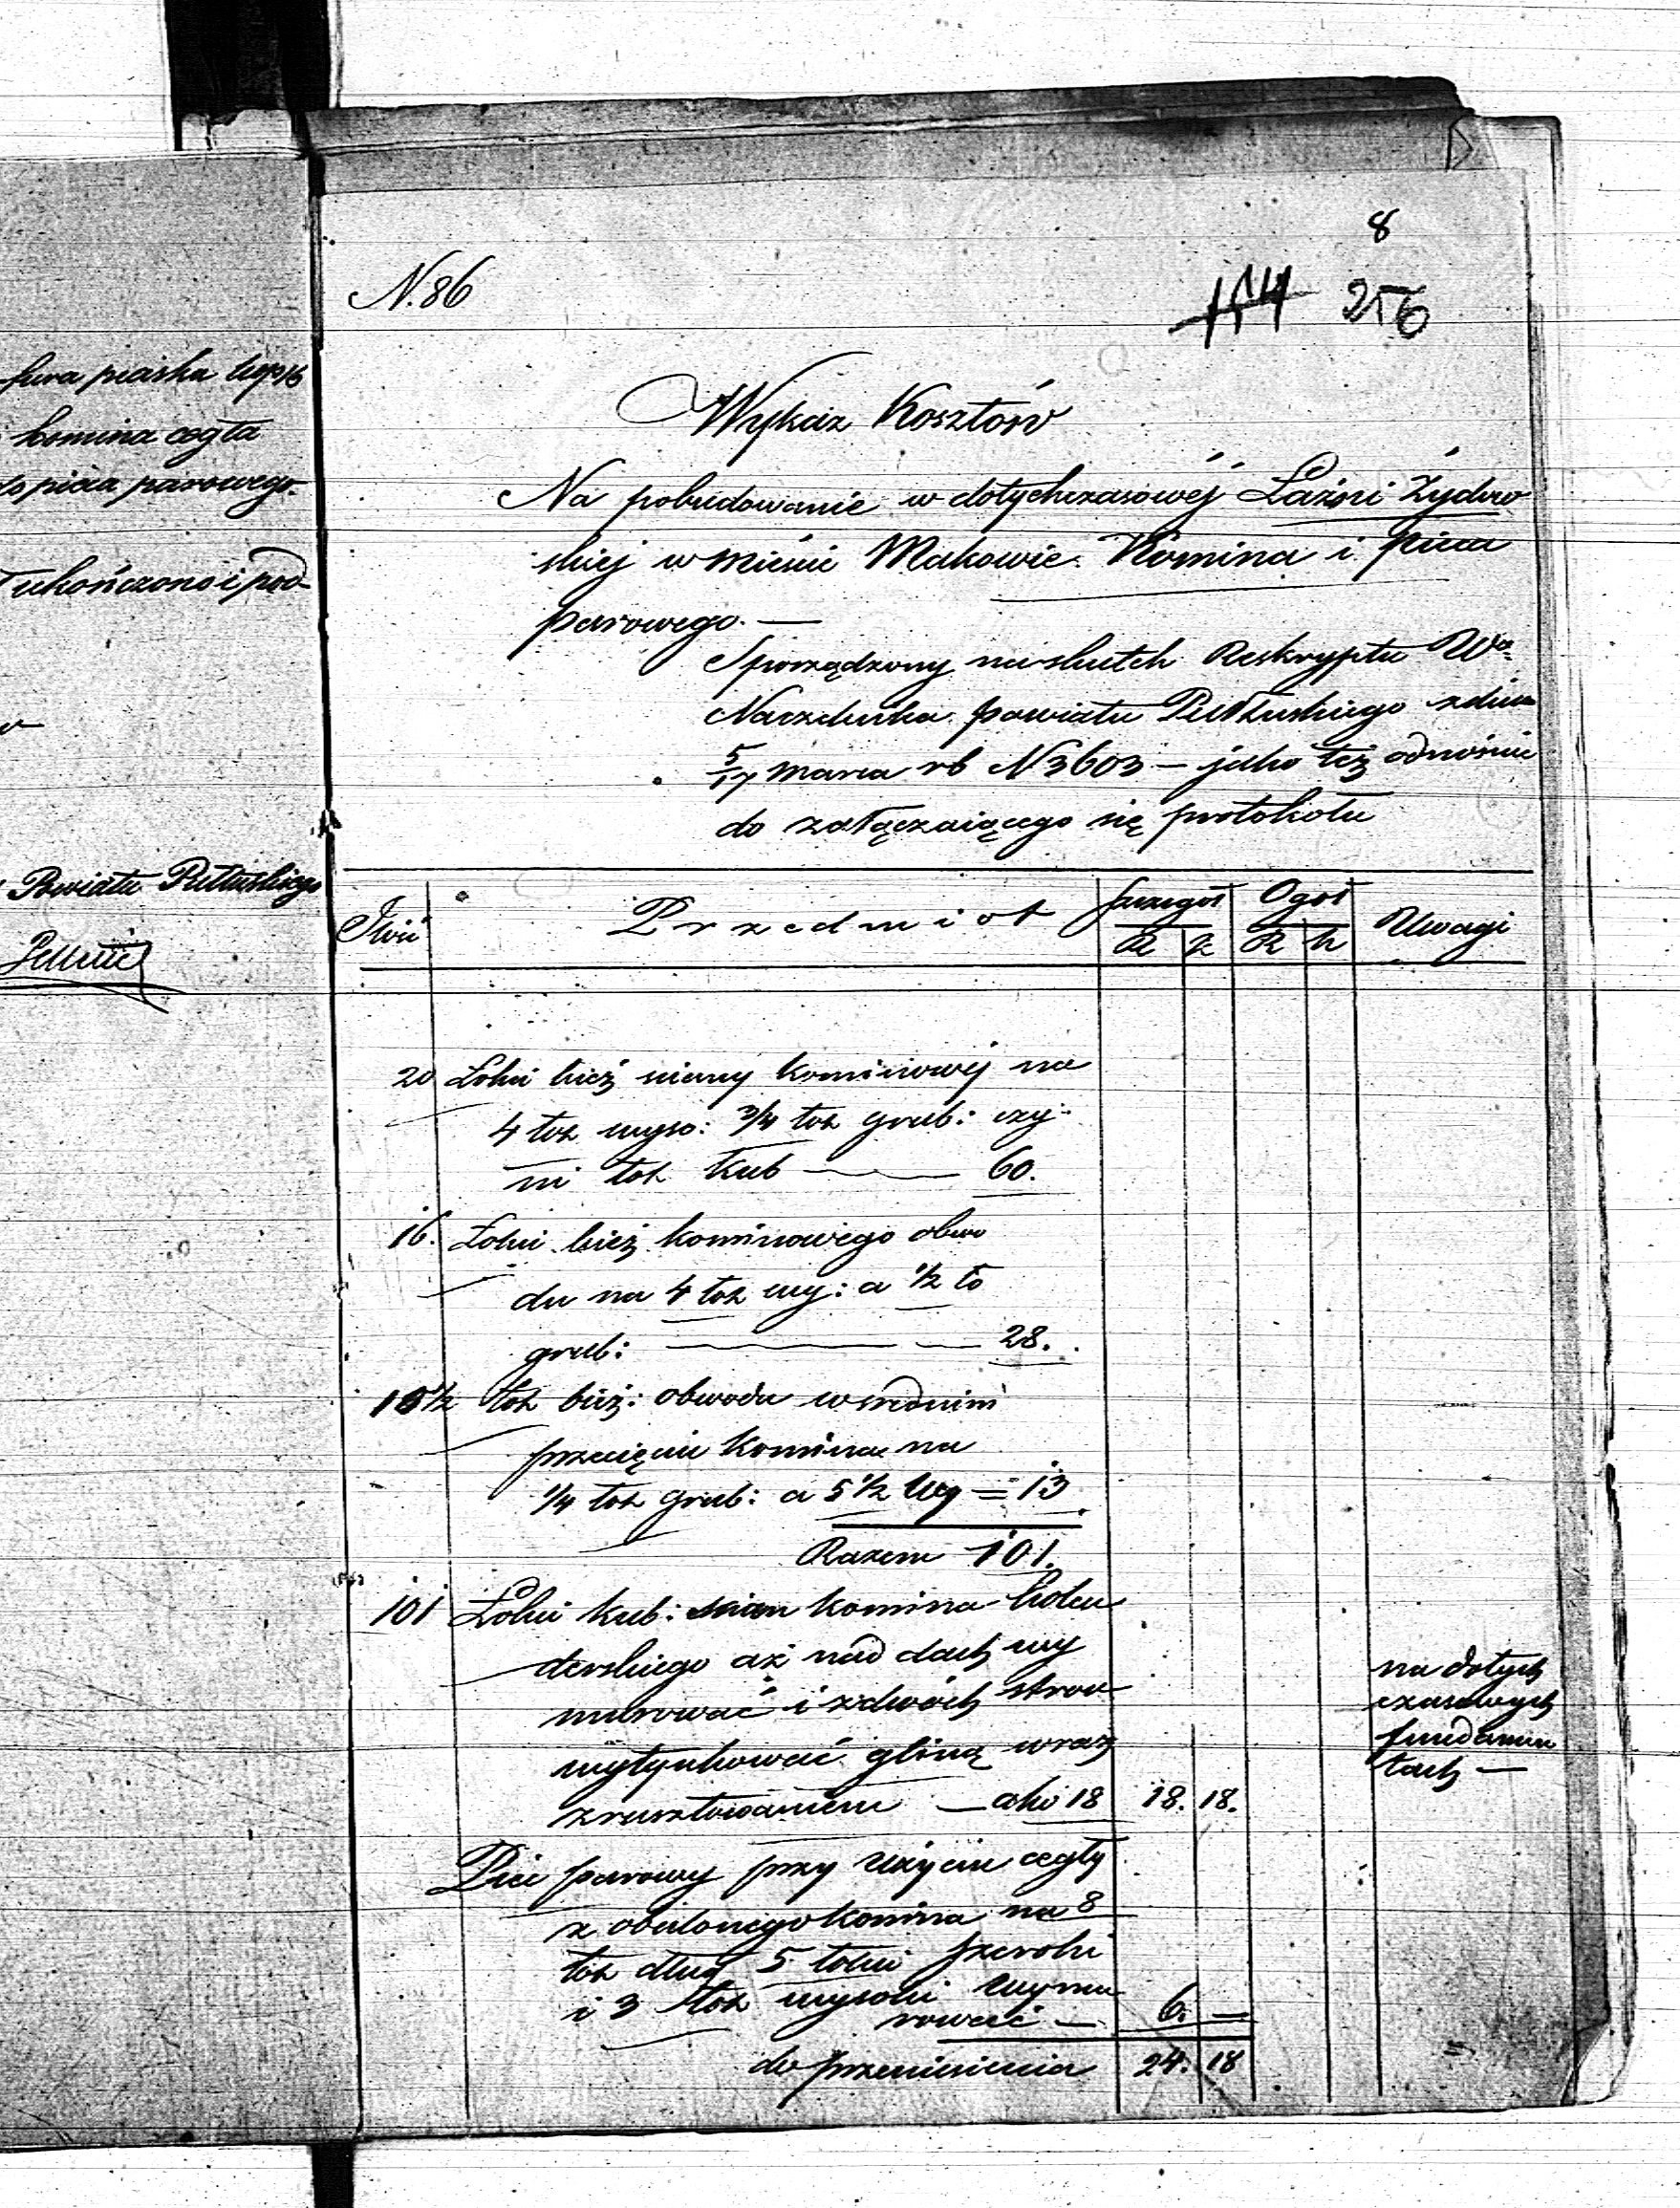 fura piaska kop 16
komina cegła
pieca parowego.
ukończono i pod-
Powiatu Pułtuskiego
8
N. 86
154 256
Wykaz Kosztów
Na pobudowanie w dotychczasowéj Łaźni Żydow
skiej w mieście Makowie Komina i pieca
parowego. —
Sporządzony na skutek Reskryptu Wo
Naczelnika powiatu Pułtuskiego z dnia
5/17 Marca rb N 3603 — jako też odnośnie
do załączaiącego się protokołu
Ilość
Przedmiot
Szczegół
Ogół
Uwagi
R k R k
20 Łokci bież sciany kominowéj na
4 łok wyso: 3/4 łok grub: czy-
ni łok kub — 60.
16. Łokci bież kominowego obwo
du na 4 łok wy: a 1/2 ło
grub: — 28.
10 1/2 łok bież: obwodu w srednim
przecięciu komina na
1/4 łok grub: a 5 1/2 wy = 13
Razem 101.
101 Łokci kub: scian komina holen
derskiego aż nad dach wy
murować i z dwóch stron
wytynkować gliną wraz
z rusztowaniem — a ko 18 18. 18.
na dotych
czasowych
fundamen
tach —
Piec parowy przy użyciu cegły
z obalonego komina na 8
łok dług 5 łokci szeroki
i 3 łok wysoki wymu
rować — 6. —
do przeniesienia 24. 18